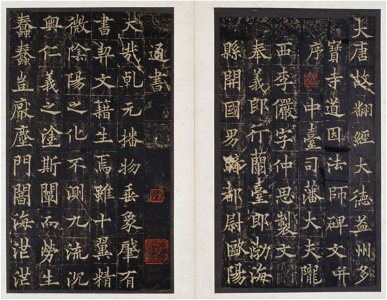 大唐故翻經大德益州多
寶寺道因法師碑文并
序 中臺司藩大夫隴
西李儼字仲思製文
奉義郎行蘭臺郎渤海
縣開國男騎都尉歐陽
通書
大哉乾元播物垂象肇有
書契文籍生焉雖十翼精
微陰陽之化不測九流沉
奧仁義之塗斯闡而勞生
蠢蠢豈厭塵門闇海茫茫